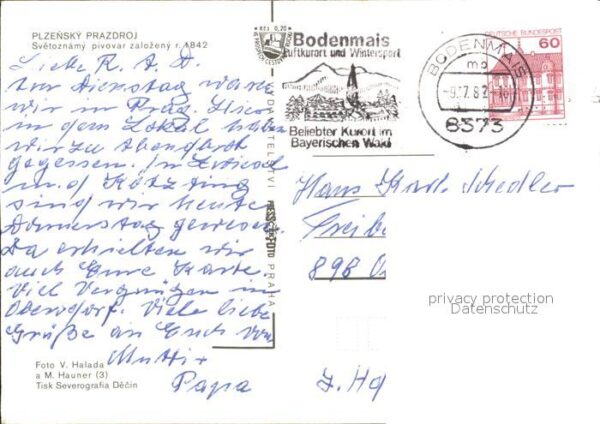 PLZEŇSKÝ PRAZDROJ
Světoznámý pivovar založený r. 1842
Liebe R. A. D.
Am Dienstag waren
wir in Prag. Hier
in dem Lokal haben
wir zu Abendbrot
gegessen. In Zwiesel
u. d. Kötzting
sind wir heute
Donnerstag gewesen.
Da erhielten wir
auch Eure Karte.
Viel Vergnügen in
Oberndorf. Viele liebe
Grüße an Euch von
Mutti +
Papa
Foto V. Halada
a M. Hauner (3)
Tisk Severografia Děčín
Kčs 0,20
VYDAVATELSTVÍ PRESSFOTO PRAHA
Bodenmais
Luftkurort und Wintersport
Beliebter Kurort im
Bayerischen Wald
BODENMAIS
mb
-9.7.82-18
8373
DEUTSCHE BUNDESPOST
60
Hans Karl
Freib
898 O
z. H
privacy protection
Datenschutz